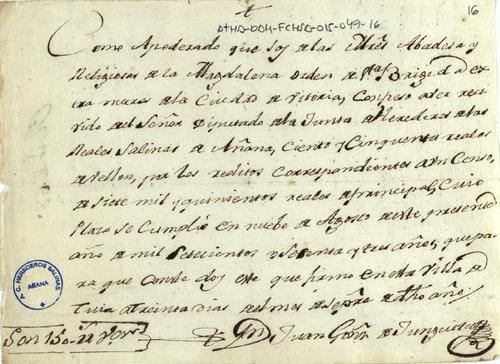 16
ATHA-DAH-FCHSG-015-049-16
Como Apoderado que soy de las MRes Abadesa y
Religiosas de la Magdalena orden de Sta Brigida ex
tra muros de la Ciudad de Vitoria, Confieso aver reci
vido del Señor Diputado de la Junta de Herederos de las
Reales Salinas de Añana, Ciento y Cinquenta reales
de Vellon, por los reditos Correspondientes a un Censo,
de siete mil y quinientos reales de principal, Cuio
Plazo se Cumplio en nuebe de Agosto de este presente
año de mil setecientos y setenta y tres años, y que pa
ra que Conste doy este que firmo en esta Villa de
Tuio a treinta dias del mes de Sepre de dho año
Son 150 rs Von
Juan de Junguitu
A.C. HEREDEROS SALINAS
AÑANA